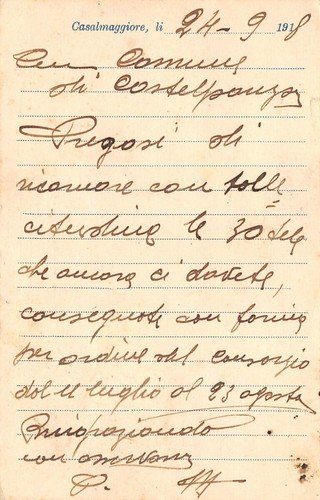 Casalmaggiore, li 24-9 1918
Comune
di Castelponzone
Pregasi di
ritornare con solle
citudine le 30 tele
che ancora ci dovete,
consegnate con forma
per ordine del Consorzio
dal 11 luglio al 23 agosto
Ringraziando
con osservanza